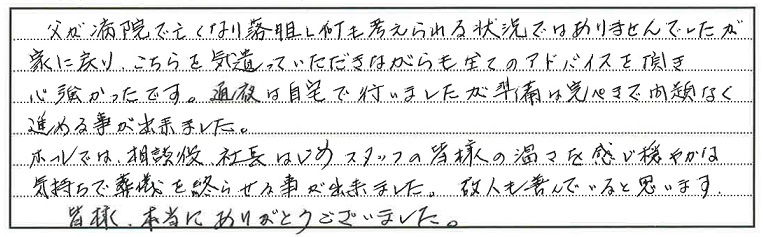 父が病院で亡くなり落胆し何も考えられる状況ではありませんでしたが
家に戻り、こちらを気遣っていただきながらも全てのアドバイスを頂き
心強かったです。通夜は自宅で行いましたが準備は完ぺきで問題なく
進める事が出来ました。
ホールでは、相談役、社長はじめスタッフの皆様の温さを感じ穏やかな
気持ちで葬儀を終らせる事が出来ました。故人も喜んでいると思います。
皆様、本当にありがとうございました。